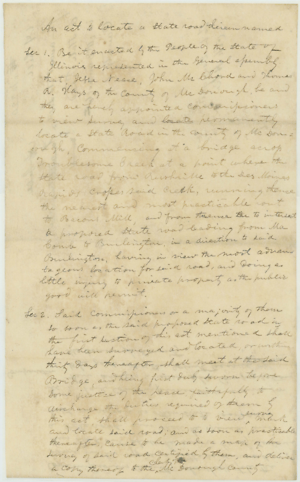 An act to locate a State road therein named
Sec 1. Be it enacted by the People of the State of
Illinois represented in the General Assembly
that, Jesse Nance, John McCord and Thomas
A. Keys of the County of McDonough be and
they are hereby appointed commissioners
to view survey and locate permanently
locate a State Road in the County of McDono
ugh, Commencing at a bridge across
Creek at a point where the
State road from Rushville to
crosses said Creek, running thence
the nearest and most practicable rout
to Mill and from thence to inters
a proposed State road leading from Ma
comb to Burlington, in a direction to said
Burlington, having in view the most advan
tageous location for said road, and doing as
little injury to private property as the public
good will permit.
Sec 2. Said Commissioners or a majority of them
so soon as the said proposed State road in
the first section of this act mentioned shall
have been surveyed and located or within
thirty days thereafter shall meet at the said
Bridge, and being first duly sworn before
some justice of the peace faithfully to
discharge the duties required of them by
this act shall proceed to view, survey, mark
and locate said road and as soon as practicable
thereafter cause to be made a map of the
survey of said road certified by them, and deliver
a copy thereof to the McDonough County